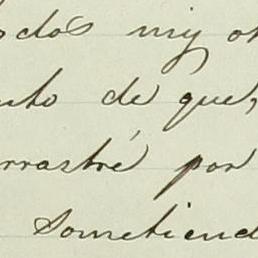 dos my
de que,
rrastré por
Sometiend